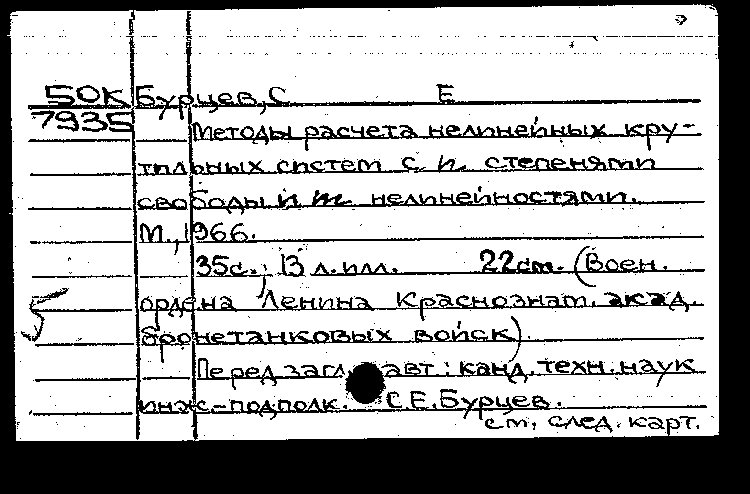 50К Бурцев, С Е
7935 Методы расчета нелинейных кру-
тильных систем с n степенями
свободы и m нелинейностями.
М., 1966.
35с.; 13 л.илл. 22см. (Воен.
ордена Ленина Краснознам. акад.
бронетанковых войск)
Перед загл. авт.: канд. техн. наук
инж-подполк. С.Е. Бурцев.
см. след. карт.